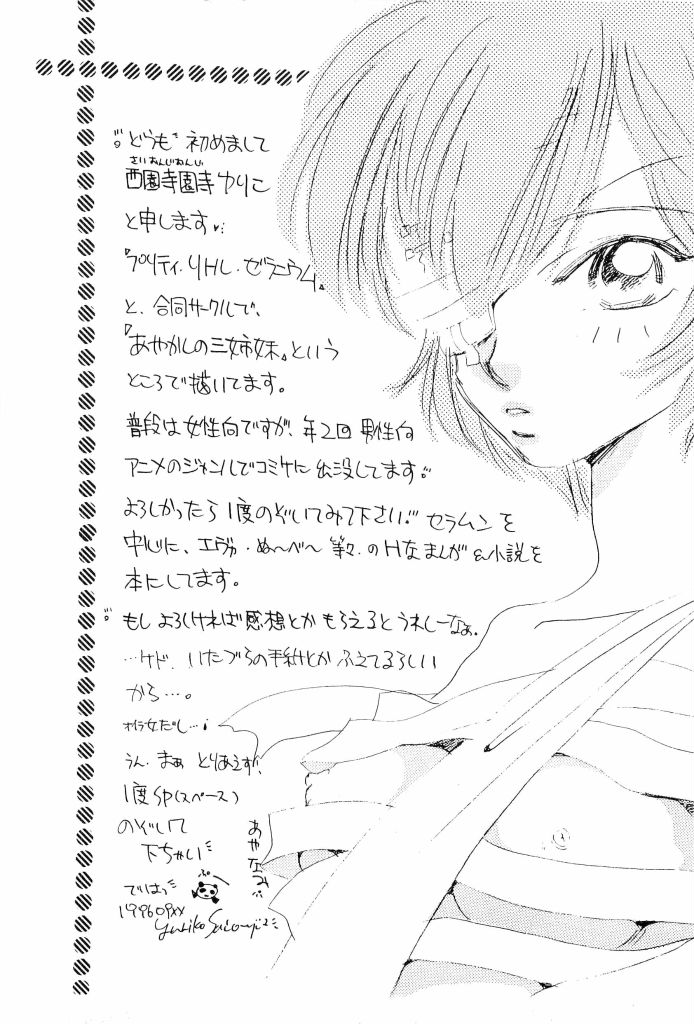 どうも 初めまして
さいおんじおんじ
西園寺園寺 ゆりこ
と申します
『プリティ・リトル・ゼラニウム』
と、合同サークルで、
『あやかしの三姉妹』という
ところで描いてます。
普段は女性向ですが、年2回 男性向
アニメのジャンルでコミケに出没してます。
よろしかったら 1度のぞいてみて下さい。 セラムン を
中心に、エヴァ・ぬ〜べ〜 等々、のHなまんが &小説を
本にしてます。
もし よろしければ感想とか もらえるとうれしーなぁ。
…ケド、いたづらの手紙とか ふえてるらしい
から…。
オイラ女だし…
うん、まぁ とりあえず、
1度SP(スペース)
のぞいて
下ちゃい
ぷー
では
199609XX
Yuriko Saionji2
あやなみ